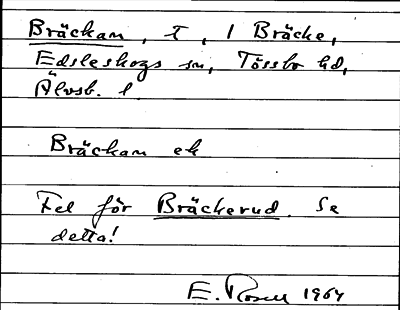 Bräckan, T, i Bräcke,
Edsleskogs sn, Tössbo hd,
Älvsb. l.
Bräckan ek
Fel för Bräckerud. Se
detta!
E. Rosell 1964